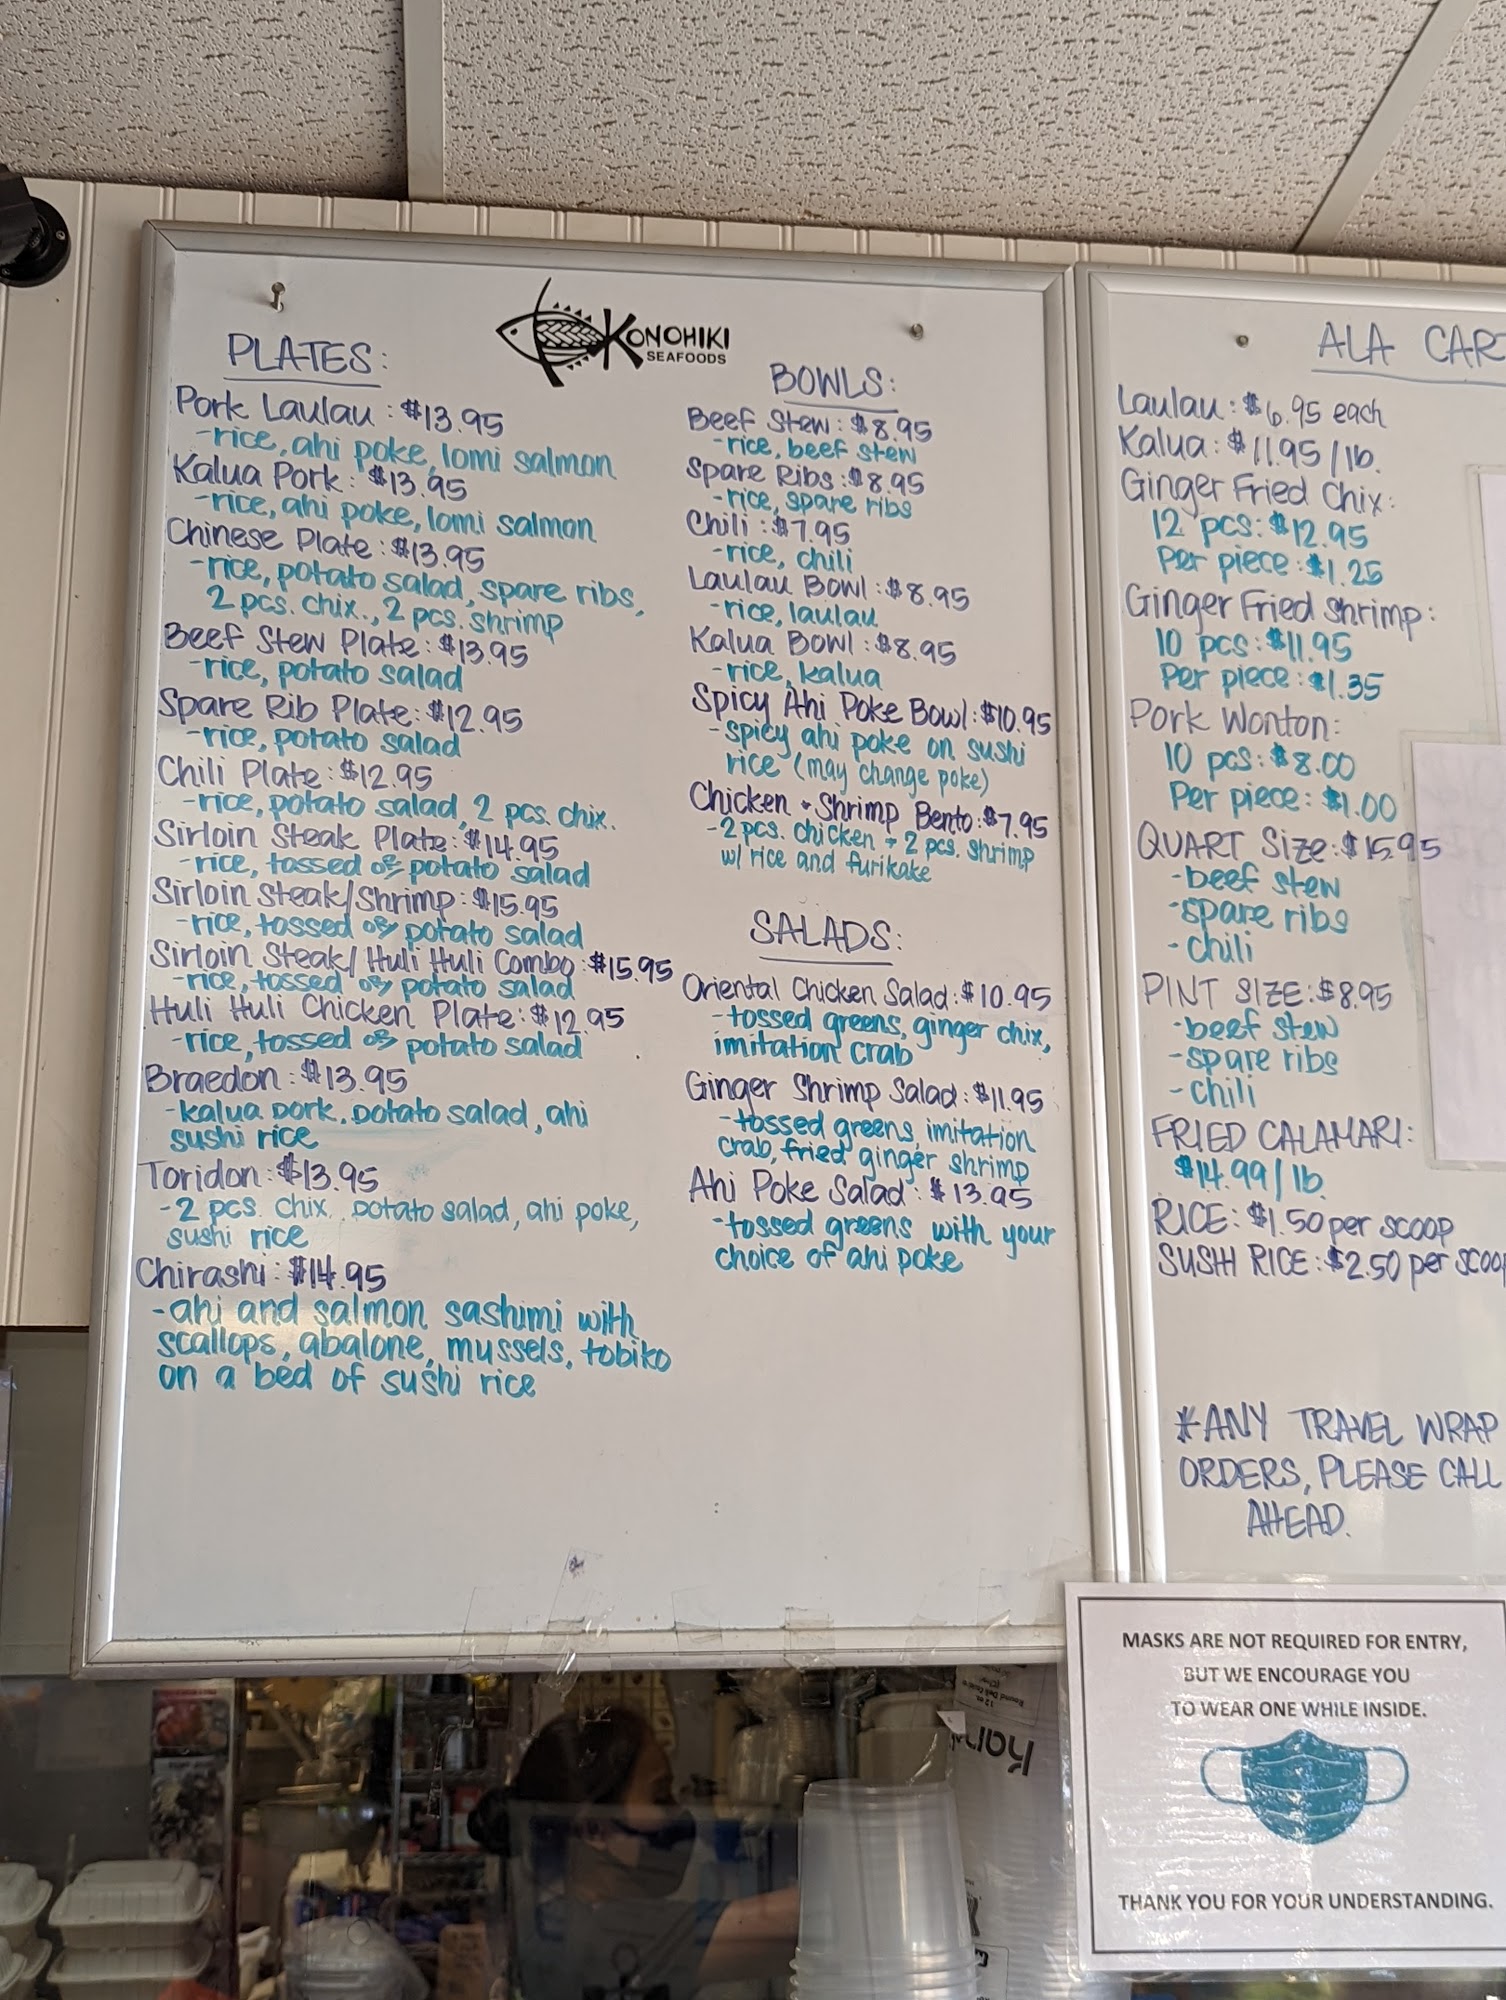 KONOHIKI
SEAFOODS
PLATES:
Pork Laulau: $13.95
-rice, ahi poke, lomi salmon
Kalua Pork: $13.95
-rice, ahi poke, lomi salmon
Chinese Plate: $13.95
-rice, potato salad, spare ribs,
2 pcs. chix., 2 pcs. shrimp
Beef Stew Plate: $13.95
-rice, potato salad
Spare Rib Plate: $12.95
-rice, potato salad
Chili Plate: $12.95
-rice, potato salad, 2 pcs. chix.
Sirloin Steak Plate: $14.95
-rice, tossed or potato salad
Sirloin Steak/Shrimp: $15.95
-rice, tossed or potato salad
Sirloin Steak/Huli Huli Combo: $15.95
-rice, tossed or potato salad
Huli Huli Chicken Plate: $12.95
-rice, tossed or potato salad
Braedon: $13.95
-kalua pork, potato salad, ahi
sushi rice
Toridon: $13.95
-2 pcs. chix. potato salad, ahi poke,
sushi rice
Chirashi: $14.95
-ahi and salmon sashimi with
scallops, abalone, mussels, tobiko
on a bed of sushi rice
BOWLS:
Beef Stew: $8.95
-rice, beef stew
Spare Ribs: $8.95
-rice, spare ribs
Chili: $7.95
-rice, chili
Laulau Bowl: $8.95
-rice, laulau
Kalua Bowl: $8.95
-rice, kalua
Spicy Ahi Poke Bowl: $10.95
-spicy ahi poke on sushi
rice (may change poke)
Chicken + Shrimp Bento: $7.95
-2 pcs. chicken + 2 pcs. shrimp
w/ rice and furikake
SALADS:
Oriental Chicken Salad: $10.95
-tossed greens, ginger chix,
imitation crab
Ginger Shrimp Salad: $11.95
-tossed greens, imitation
crab, fried ginger shrimp
Ahi Poke Salad: $13.95
-tossed greens with your
choice of ahi poke
ALA CAR
Laulau: $6.95 each
Kalua: $11.95/lb.
Ginger Fried Chix:
12 pcs: $12.95
Per piece: $1.25
Ginger Fried Shrimp:
10 pcs: $11.95
Per piece: $1.35
Pork Wonton:
10 pcs: $8.00
Per piece: $1.00
QUART Size: $15.95
-beef stew
-spare ribs
-chili
PINT SIZE: $8.95
-beef stew
-spare ribs
-chili
FRIED CALAMARI:
$14.99/lb.
RICE: $1.50 per scoop
SUSHI RICE: $2.50 per scoop
*ANY TRAVEL WRAP
ORDERS, PLEASE CALL
AHEAD.
MASKS ARE NOT REQUIRED FOR ENTRY,
BUT WE ENCOURAGE YOU
TO WEAR ONE WHILE INSIDE.
THANK YOU FOR YOUR UNDERSTANDING.